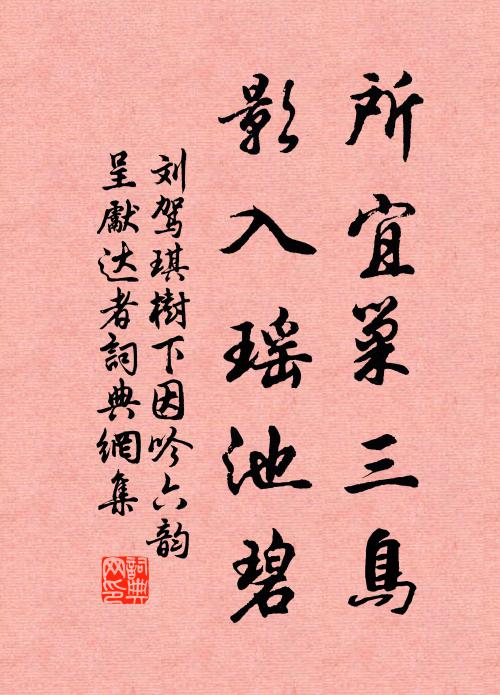 所宜巢三鳥
影入瑶池碧
刘驾琪樹下因吟六韵
呈獻达者詞典網集
詞典网印